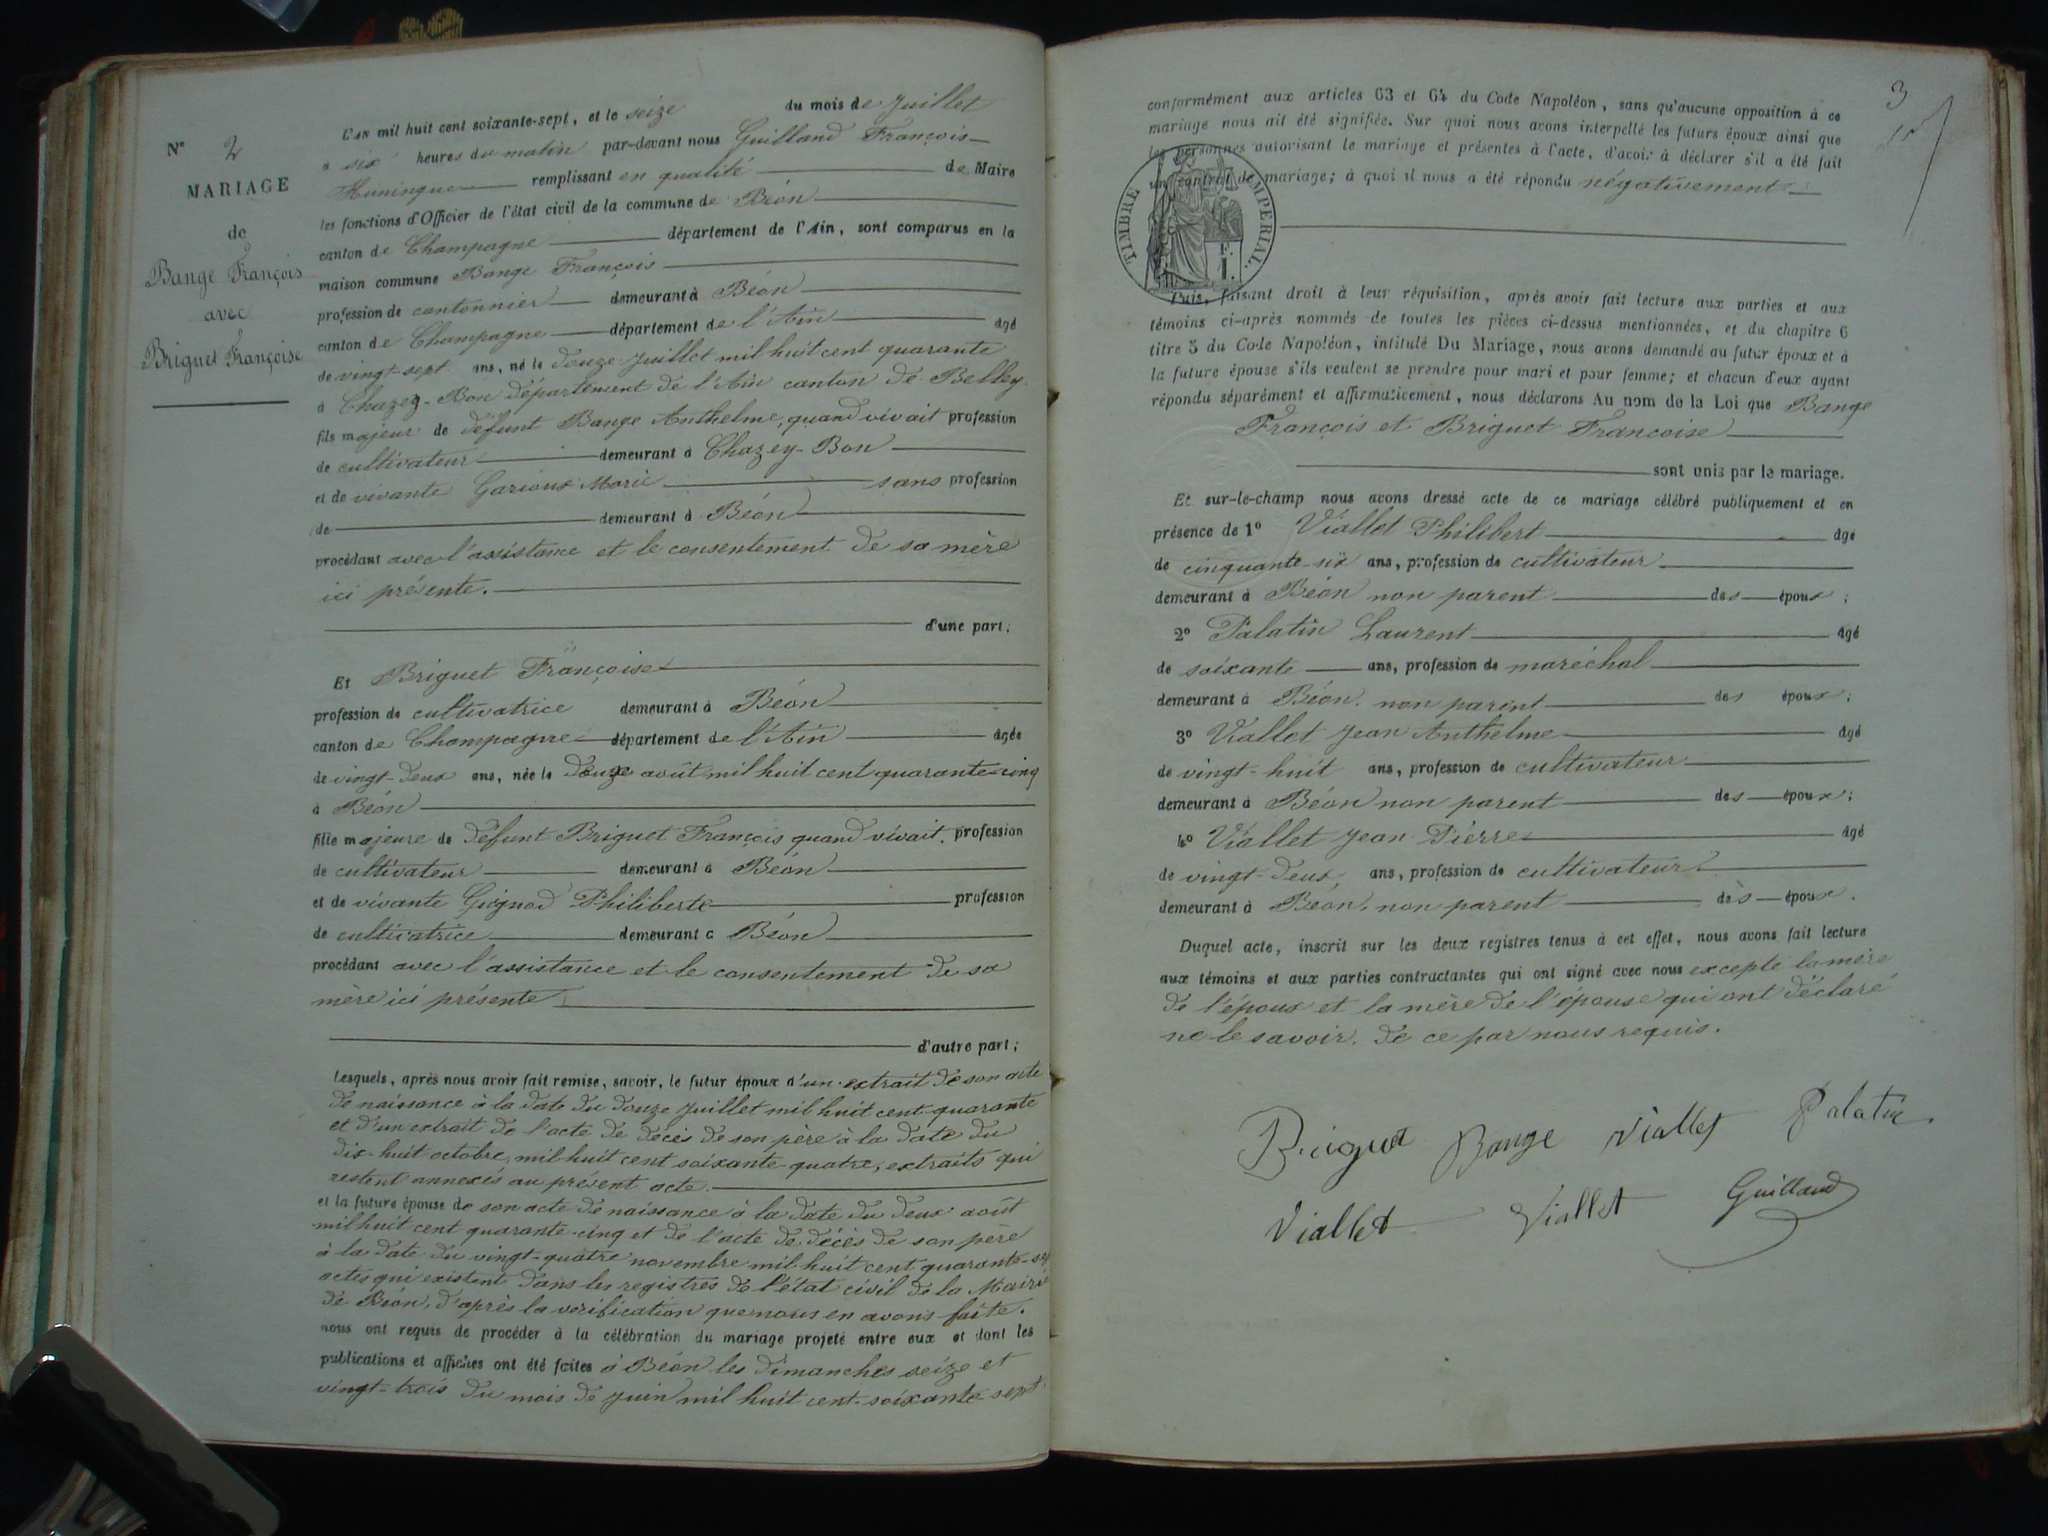 N° 2
MARIAGE
de
Bange François
avec
Briguet Françoise
L'AN mil huit cent soixante-sept, et le seize du mois de Juillet
à six heures du matin par-devant nous Guilland François
Huningue remplissant en qualité de Maire
les fonctions d'Officier de l'état civil de la commune de Béon
canton de Champagne département de l'Ain, sont comparus en la
maison commune Bange François
profession de cantonnier demeurant à Béon
canton de Champagne département de l'Ain âgé
de vingt-sept ans, né le douze Juillet mil huit cent quarante
à Chazey-Bon département de l'Ain canton de Belley
fils majeur de défunt Bange Anthelme, quand vivait profession
de cultivateur demeurant à Chazey-Bon
et de vivante Garioux Marie sans profession
de demeurant à Béon
procédant avec l'assistance et le consentement de sa mère
ici présente.
d'une part;
Et Briguet Françoise
profession de cultivatrice demeurant à Béon
canton de Champagne département de l'Ain âgée
de vingt-deux ans, née le douze août mil huit cent quarante-cinq
à Béon
fille majeure de défunt Briguet François quand vivait profession
de cultivateur demeurant à Béon
et de vivante Guignod Philiberte profession
de cultivatrice demeurant à Béon
procédant avec l'assistance et le consentement de sa
mère ici présente
d'autre part;
Lesquels, après nous avoir fait remise, savoir, le futur époux d'un extrait de son acte
de naissance à la date du douze Juillet mil huit cent quarante
et d'un extrait de l'acte de décès de son père à la date du
dix-huit octobre, mil huit cent soixante-quatre, extraits qui
restent annexés au présent acte.
et la future épouse de son acte de naissance à la date du deux août
mil huit cent quarante-cinq et de l'acte de décès de son père
à la date du vingt-quatre novembre mil huit cent quarante-
actes qui existent dans les registres de l'état civil de la Mairie
de Béon, d'après la verification que nous en avons faite.
nous ont requis de procéder à la célébration du mariage projeté entre eux et dont les
publications et affiches ont été faites à Béon les dimanches seize et
vingt-trois du mois de Juin mil huit cent-soixante-sept
3
conformément aux articles 63 et 64 du Code Napoléon, sans qu'aucune opposition à ce
mariage nous ait été signifiée. Sur quoi nous avons interpellé les futurs époux ainsi que
les personnes autorisant le mariage et présentes à l'acte, d'avoir à déclarer s'il a été fait
un contrat de mariage; à quoi il nous a été répondu négativement
TIMBRE IMPERIAL.
1 F.
Puis, faisant droit à leur réquisition, après avoir fait lecture aux parties et aux
témoins ci-après nommés de toutes les pièces ci-dessus mentionnées, et du chapitre 6
titre 5 du Code Napoléon, intitulé Du Mariage, nous avons demandé au futur époux et à
la future épouse s'ils veulent se prendre pour mari et pour femme; et chacun d'eux ayant
répondu séparément et affirmativement, nous déclarons Au nom de la Loi que Bange
François et Briguet Francoise
sont unis par le mariage.
Et sur-le-champ nous avons dressé acte de ce mariage célébré publiquement et en
présence de 1° Viallet Philibert âgé
de cinquante-six ans, profession de cultivateur
demeurant à Béon non parent des époux;
2° Palatin Laurent âgé
de soixante ans, profession de maréchal
demeurant à Béon. non parent des époux;
3° Viallet Jean Anthelme âgé
de vingt-huit ans, profession de cultivateur
demeurant à Béon non parent des époux;
4° Viallet Jean Pierre âgé
de vingt-deux ans, profession de cultivateur
demeurant à Béon, non parent des époux.
Duquel acte, inscrit sur les deux registres tenus à cet effet, nous avons fait lecture
aux témoins et aux parties contractantes qui ont signé avec nous excepté la mère
de l'époux et la mère de l'épouse qui ont déclaré
ne le savoir. de ce par nous requis.
Briguet Bange Viallet Palatin
Viallet Viallet Guilland